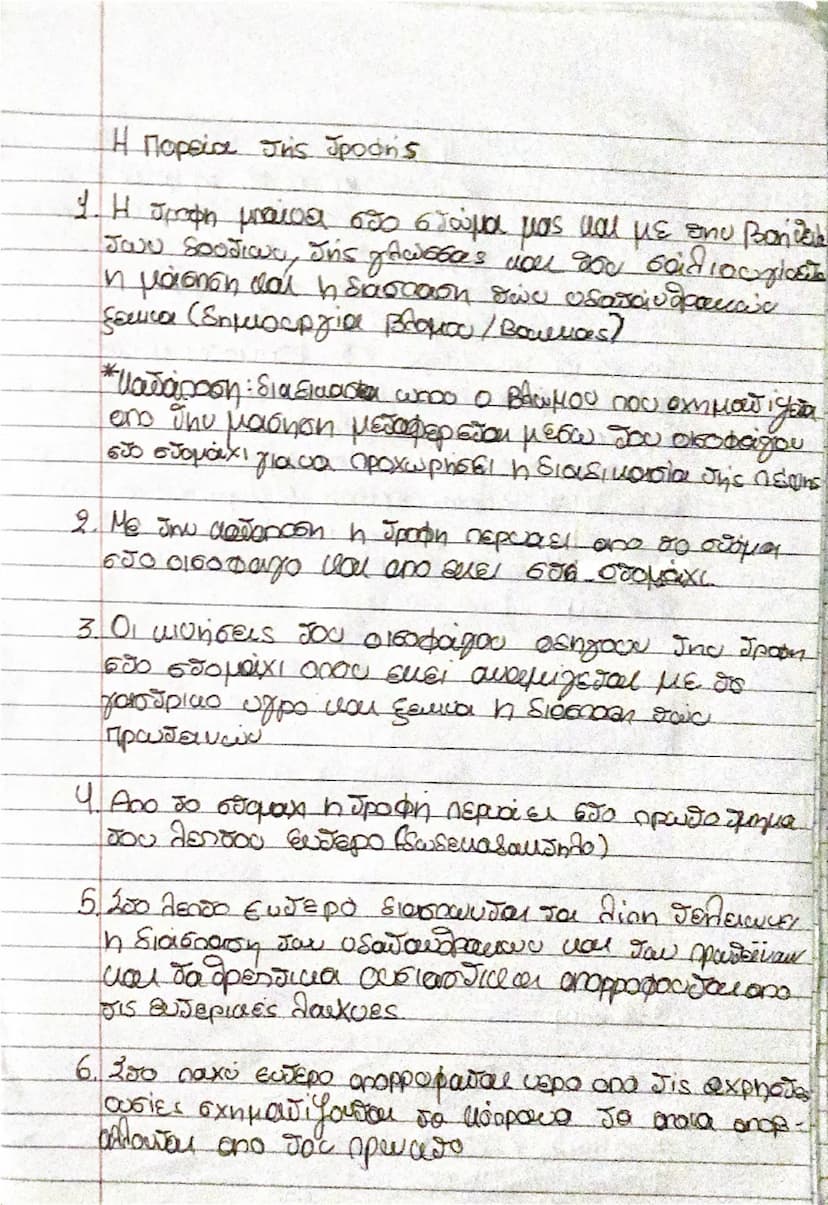 Η Πορεία της τροφής
1. Η τροφη μπαινει στο στόμα μας και με την βοήθεια
των δοντιων, της γλώσσας και του σάλιου γίνεται
η μάσηση και η διασπαση των υδατάνθρακών
ξεκινα (δημιουργία βλωμου/Βουκιας)
*Καταποση: διαδικασια οπου ο βλώμου που σχηματιζεται
απο την μασηση μεταφερεται μέσω του οισοφάγου
στο στομάχι για να προχωρήσει η διαδικασία της πέψης
2. Με την καταποση η τροφη περναει απο το στόμα
στο οισοφαγο και απο εκει στο στομάχι.
3. Οι κινήσεις του οισοφάγου οδηγουν την τροφη
στο στομάχι οπου εκεί αναμιγεται με το
γαστρικο υγρο και ξεκινα η διάσπαση των
πρωτεινων
4. Απο το στομαχι η τροφή περνάει στο πρωτο τμημα
του λεπτου εντερο (δωδεκαδακτυλο)
5. Στο λεπτο εντερο διασπωνται τα λιπη τελειωνει
η διάσπαση των υδατανθρακων και των πρωτεϊνων
και τα θρεπτικα συστατικα απορροφουνται απο
τις εντερικές λαχνες
6. Στο παχύ εντερο απορροφαται νερο απο τις αχρηστες
ουσίες σχηματίζονται τα κόπρανα τα οποια αποβ-
άλλονται απο τον πρωκτο